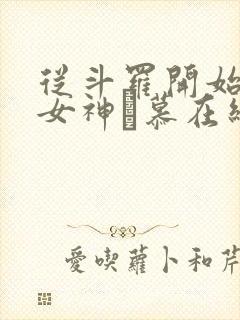 從斗羅開始
女神 慕在
愛喫蘿卜和芹